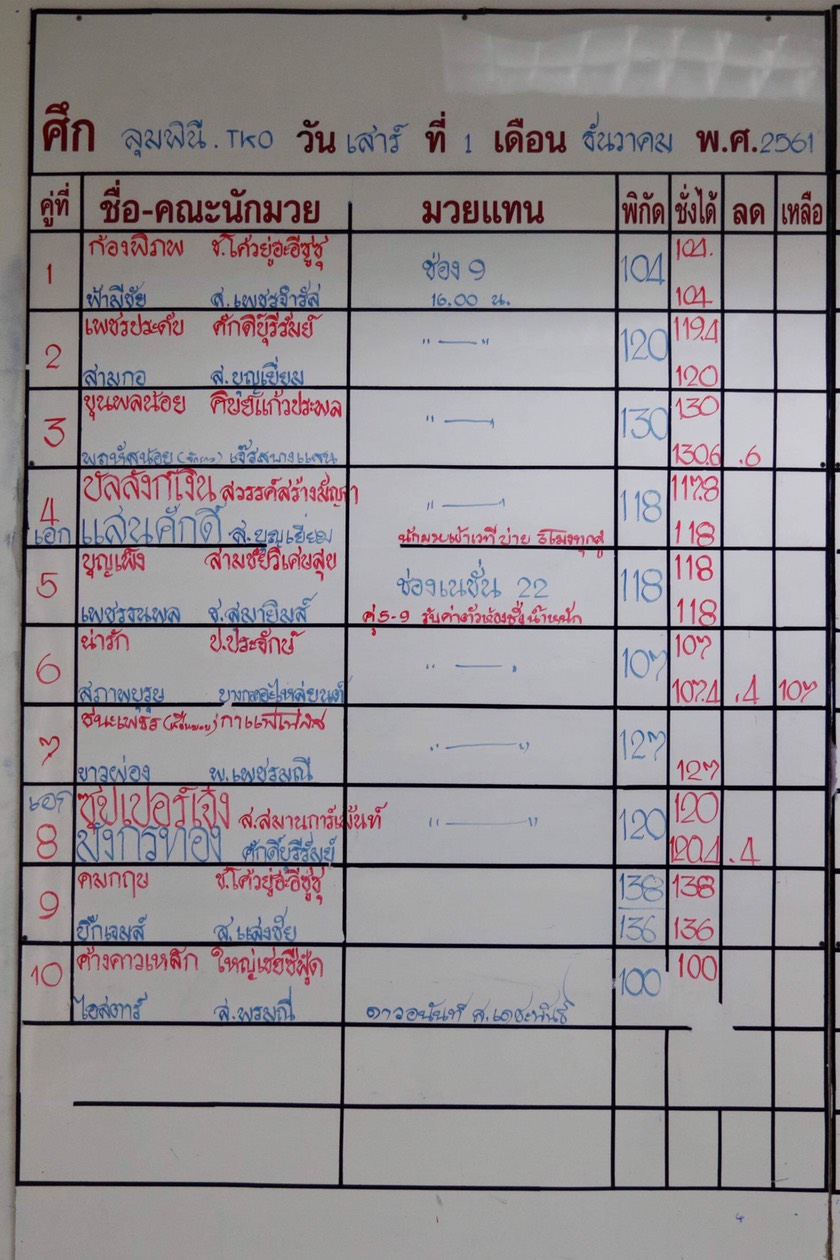 ศึก ลุมพินี.TKO วัน เสาร์ ที่ 1 เดือน ธันวาคม พ.ศ.2561
คู่ที่ ชื่อ-คณะนักมวย มวยแทน พิกัด ชั่งได้ ลด เหลือ
ก้องพิภพ ช.โค้วยู่ฮะอีซูซุ 104.
1 ช่อง 9 104
ฟ้ามีชัย ส.เพชรจำรัส 16.00 น. 104
เพชรประดับ ศักดิ์บุรีรัมย์ 119.4
2 "—" 120
สามกอ ส.บุญเยี่ยม 120
ขุนพลน้อย ศิษย์แก้วประพล 130
3 "—" 130
130.6 .6
บัลลังก์เงิน สวรรค์สร้างมัญจา 117.8
4 "—" 118
เอก แสนศักดิ์ ส.บุญเยี่ยม นักมวยเข้าเวที บ่าย 3โมงทุกคู่ 118
บุญเพ็ง สามชัยวิเศษสุข 118
5 ช่องเนชั่น 22 118
เพชรธนพล ช.สมายิมส์ คู่ 5-9 รับค่าตัวห้องชั่งน้ำหนัก 118
น่ารัก ป.ประจักษ์ 107
6 "—" 107
สุภาพบุรุษ 107.4 .4 107
กาแฟโฟกัส
7 "—" 127
ขาวผ่อง พ.เพชรมณี 127
เอก ซุปเปอร์เจ้ง ส.สมานการ์เม้นท์ 120
"—" 120
8 มังกรทอง ศักดิ์บุรีรัมย์ 120.4 .4
คมกฤษ ช.โค้วยู่ฮะอีซูซุ 138 138
9
บิ๊กเจมส์ ส.แสงชัย 136 136
ค้างคาวเหล็ก ใหญ่เซซีฟู้ด 100
10 100
ไอสตาร์ ส.พรมณี ดาวอนันท์ ส.เดชะพันธ์